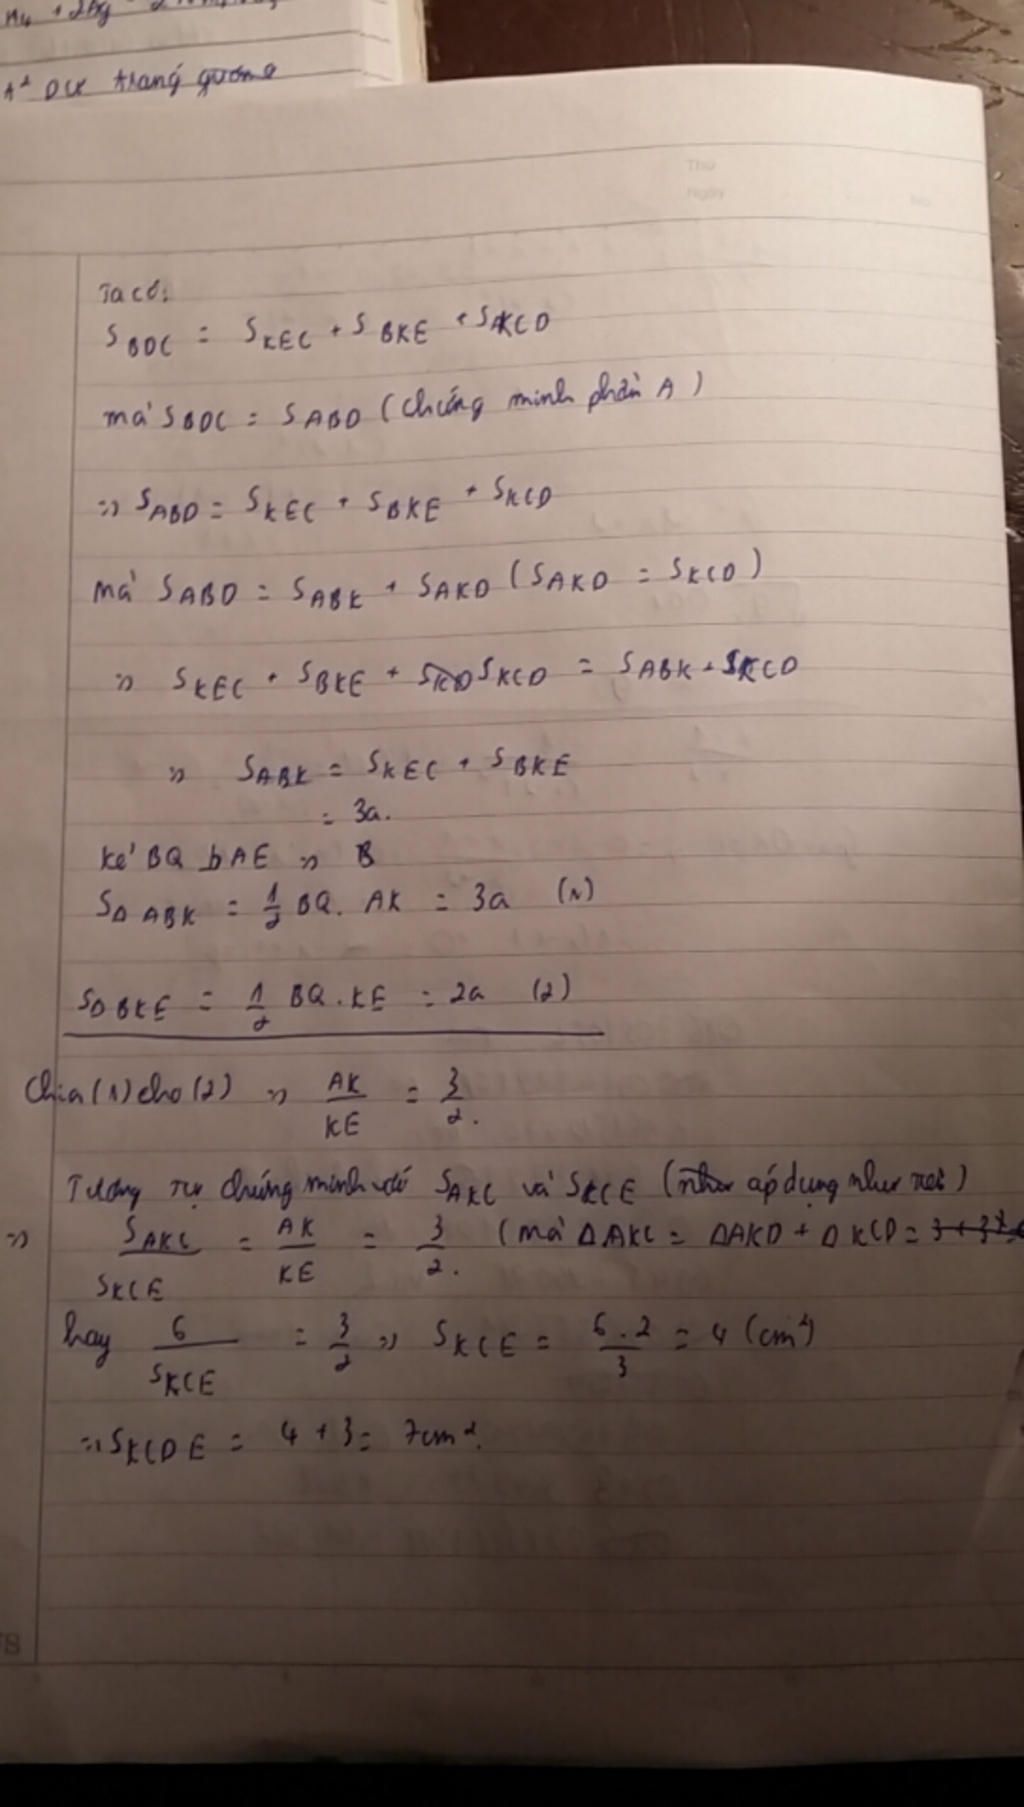 A² DCX trang gương
Thứ
Ngày
No.
Ta có:
S BDC = S KEC + S BKE + S KCD
mà S BDC = S ABD (chứng minh phần A)
=> S ABD = S KEC + S BKE + S KCD
mà S ABD = S ABK + S AKD (S AKD = S KCD)
=> S KEC + S BKE + S KCD = S ABK + S KCD
=> S ABK = S KEC + S BKE
= 3a.
kẻ BQ ⊥ AE => B
S Δ ABK = 1/2 BQ. AK = 3a (1)
S Δ BKE = 1/2 BQ . KE = 2a (2)
Chia (1) cho (2) => AK/KE = 3/2.
Tương tự chứng minh với S AKC và S KCE ( áp dụng như trên)
=> S AKC / S KCE = AK/KE = 3/2. (mà Δ AKC = Δ AKD + Δ KCD = 3 + 3
hay 6 / S KCE = 3/2 => S KCE = 6 . 2 / 3 = 4 (cm²)
=> S KCDE = 4 + 3 = 7cm².